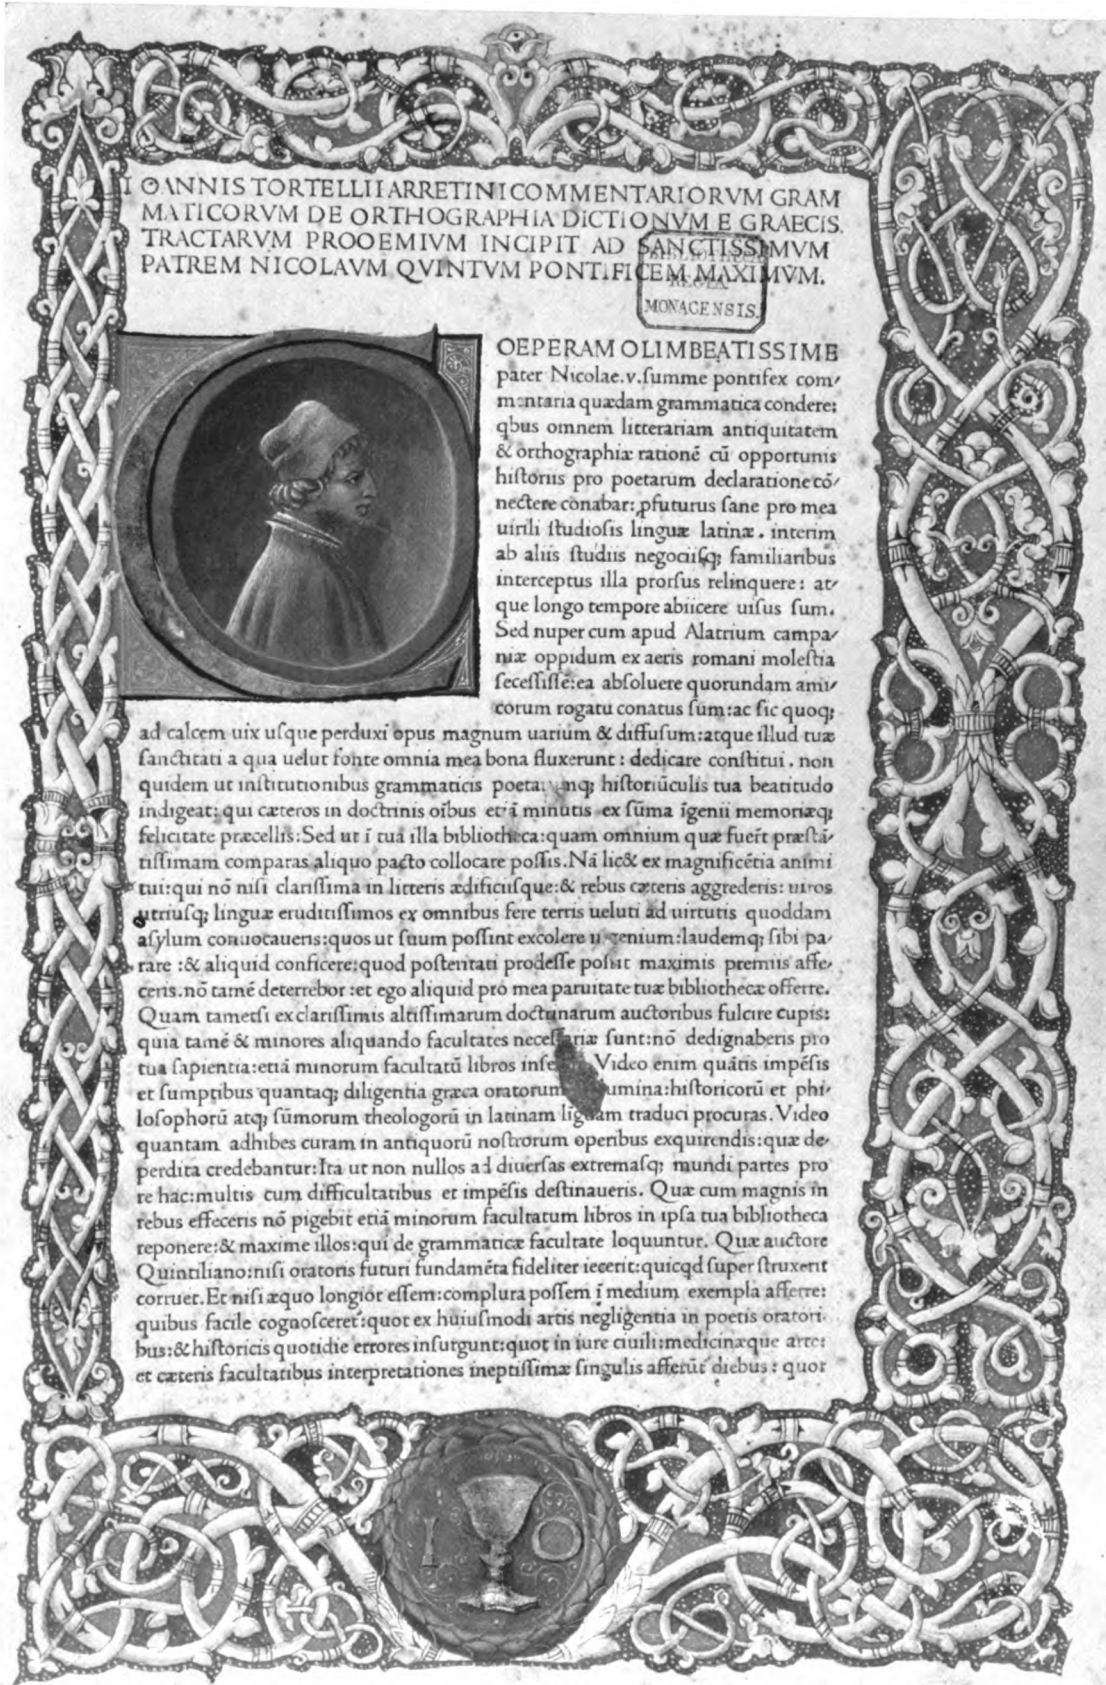 IOANNIS TORTELLII ARRETINI COMMENTARIORVM GRAM
MATICORVM DE ORTHOGRAPHIA DICTIONVM E GRAECIS.
TRACTARVM PROOEMIVM INCIPIT AD SANCTISSIMVM
PATREM NICOLAVM QVINTVM PONTIFICEM MAXIMVM.
BIBLIOTHECA
REGIA
MONACENSIS.
COEPERAM OLIM BEATISSIME
pater Nicolae.v.summe pontifex com/
mentaria quædam grammatica condere:
qbus omnem litterariam antiquitatem
& orthographiæ rationē cū opportunis
historiis pro poetarum declaratione cō/
nectere conabar: ꝓfuturus sane pro mea
uirili studiosis linguæ latinæ. interim
ab aliis studiis negociisq; familiaribus
interceptus illa prorsus relinquere: at/
que longo tempore abiicere uisus sum.
Sed nuper cum apud Alatrium campa/
niæ oppidum ex aeris romani molestia
secessissē: ea absoluere quorundam ami/
corum rogatu conatus sum: ac sic quoq;
ad calcem uix usque perduxi opus magnum uarium & diffusum: atque illud tuæ
sanctitati a qua uelut fonte omnia mea bona fluxerunt: dedicare constitui. non
quidem ut institutionibus grammaticis historiūculis tua beatitudo
indigeat: qui cæteros in doctrinis oībus etiā minutis ex sūma īgenii memoriæq;
felicitate præcellis: Sed ut ī tua illa bibliotheca: quam omnium quæ fuerīt præstā/
tissimam comparas aliquo pacto collocare possis. Nā lic& ex magnificētia animi
tui: qui nō nisi clarissima in litteris ædificiisque: & rebus cæteris aggrederis: uiros
utriusq; linguæ eruditissimos ex omnibus fere terris ueluti ad uirtutis quoddam
asylum conuocaueris: quos ut suum possint excolere ingenium: laudemq; sibi pa/
rare: & aliquid conficere: quod posteritati prodesse possit maximis premiis affe/
ceris. nō tamē deterrebor: et ego aliquid pro mea paruitate tuæ bibliothecæ offerre.
Quam tametsi ex clarissimis altissimarum doctrinarum auctoribus fulcire cupis:
quia tamē & minores aliquando facultates necessariæ sunt: nō dedignaberis pro
tua sapientia: etiā minorum facultatū libros Video enim quātis impēsis
et sumptibus quantaq; diligentia græca oratorum historicorū et phi/
losophorū atq; sūmorum theologorū in latinam linguam traduci procuras. Video
quantam adhibes curam in antiquorū nostrorum operibus exquirendis: quæ de/
perdita credebantur: Ita ut non nullos ad diuersas extremasq; mundi partes pro
re hac: multis cum difficultatibus et impēsis destinaueris. Quæ cum magnis in
rebus effeceris nō pigebit etiā minorum facultatum libros in ipsa tua bibliotheca
reponere: & maxime illos: qui de grammaticæ facultate loquuntur. Quæ auctore
Quintiliano: nisi oratoris futuri fundamēta fideliter iecerit: quicqd super struxerit
corruet. Et nisi æquo longior essem: complura possem ī medium exempla afferre:
quibus facile cognosceret: quot ex huiusmodi artis negligentia in poetis oratori.
bus: & historicis quotidie errores insurgunt: quot in iure ciuili: medicinæque arte:
et cæteris facultatibus interpretationes ineptissimæ singulis afferūt diebus: quot
I O